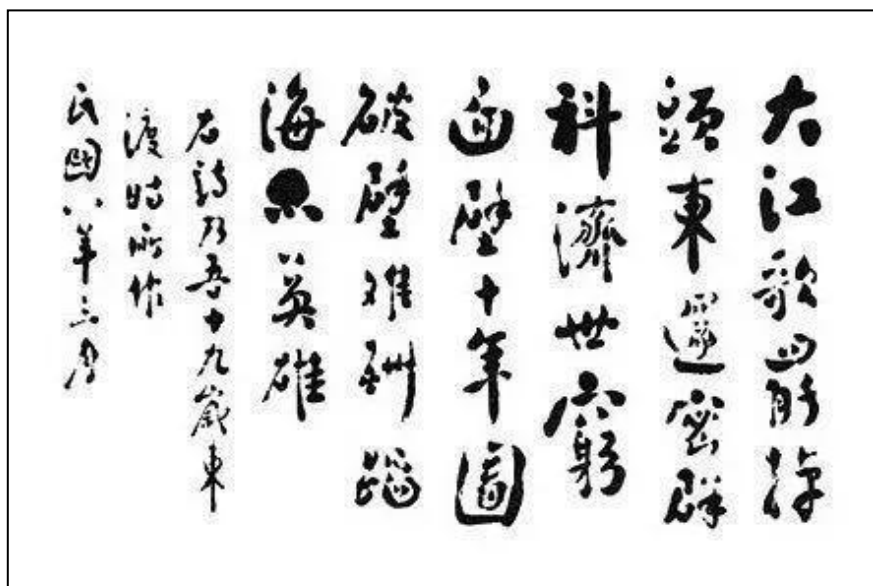 大江歌罷掉
頭東邃密群
科濟世窮
面壁十年圖
破壁难酬蹈
海亦英雄
右詩乃吾十九歲東
渡時所作
民國八年三月